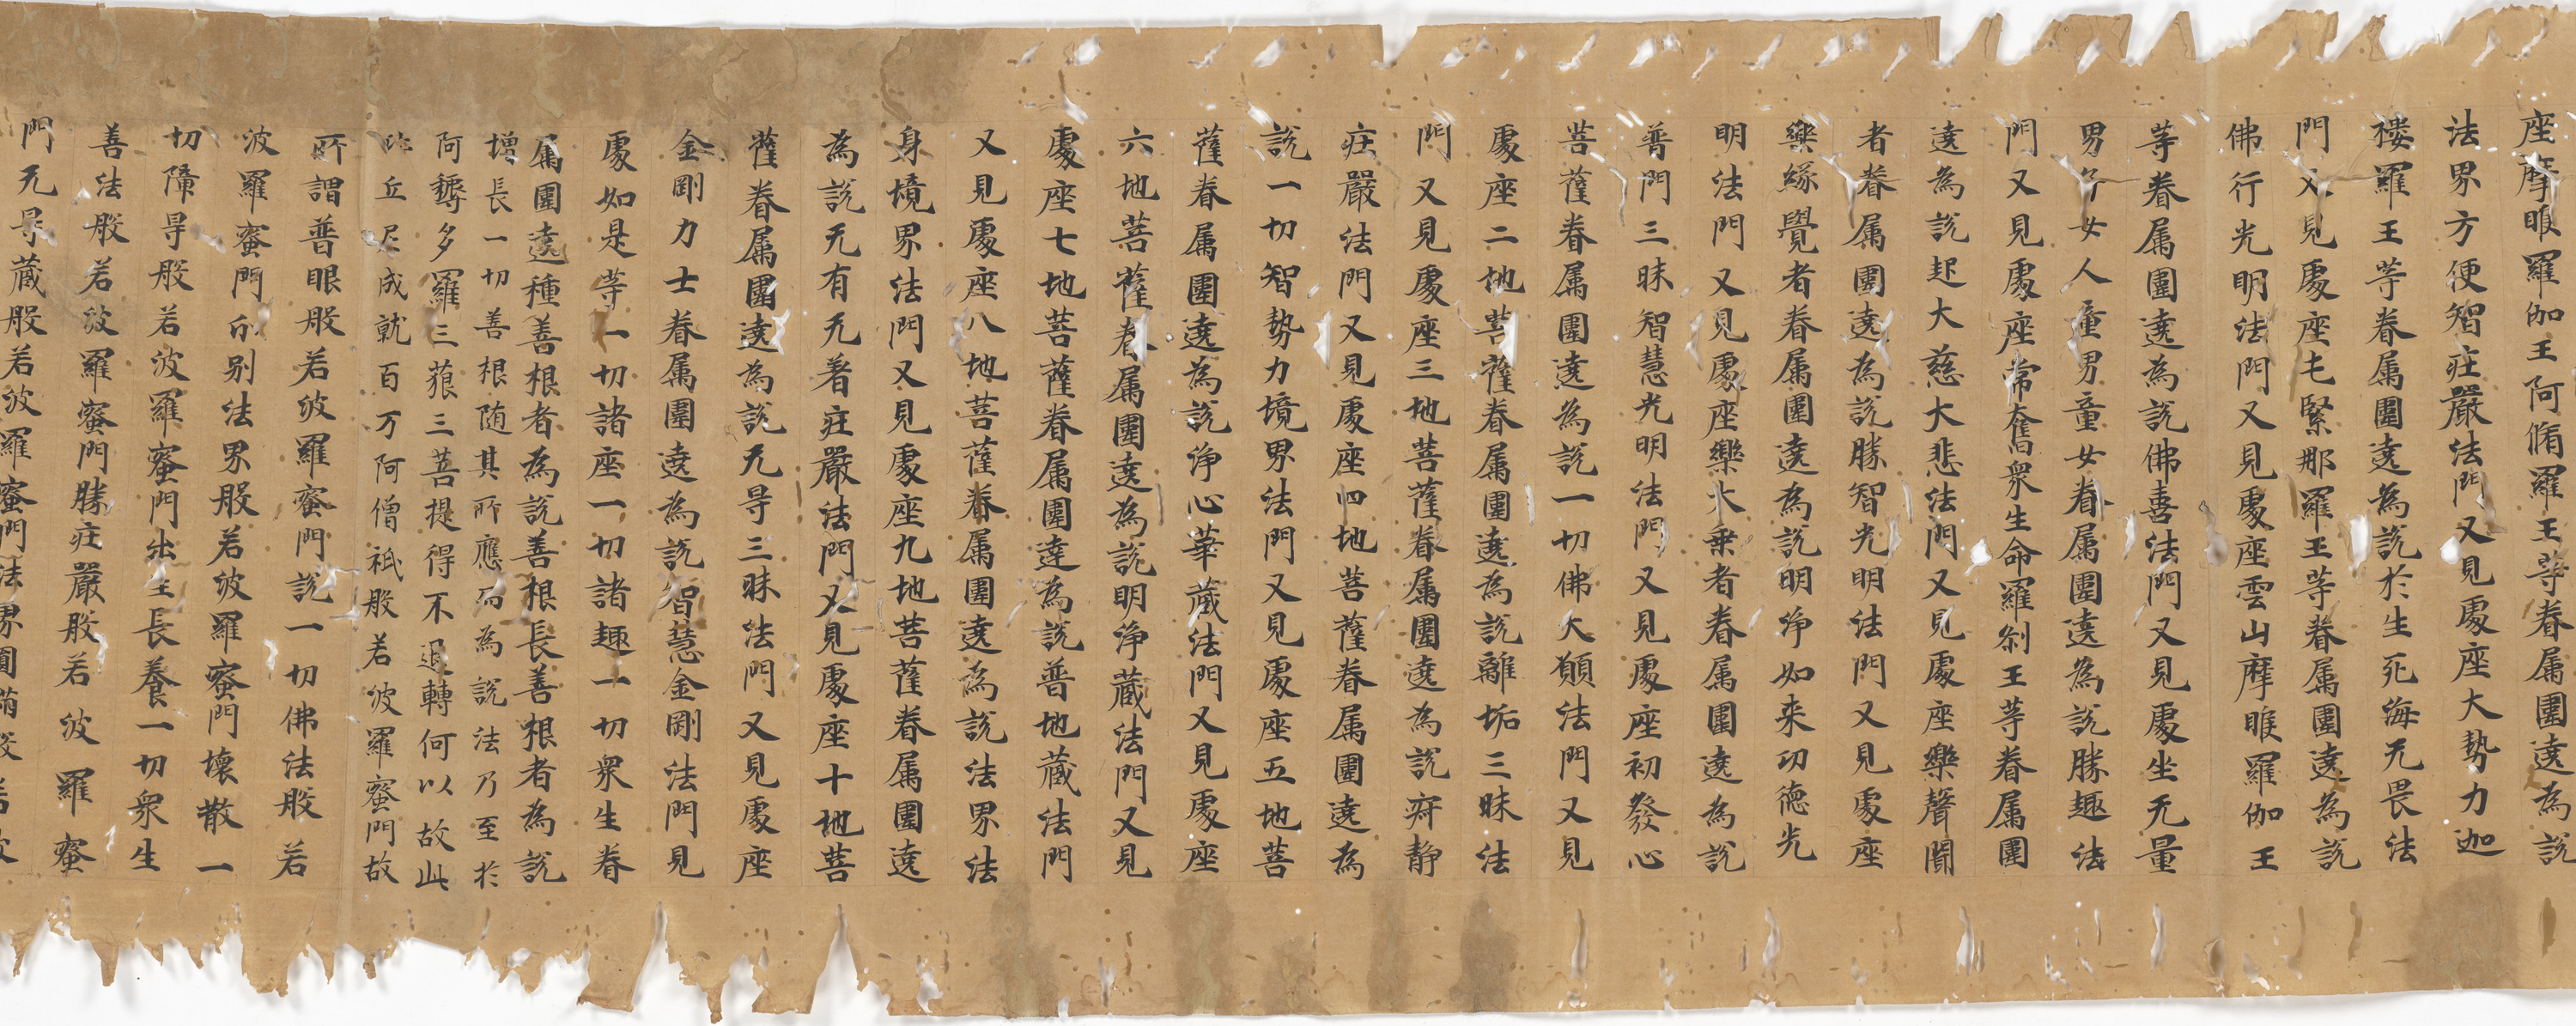 座摩睺羅伽王阿脩羅王等眷属圍遶為說
法界方便智莊嚴法門又見處座大勢力迦
樓羅王等眷属圍遶為說於生死海无畏法
門又見處座毛緊那羅王等眷属圍遶為說
佛行光明法門又見處座雲山摩睺羅伽王
等眷属圍遶為說佛善法門又見處坐无量
男子女人童男童女眷属圍遶為說勝趣法
門又見處座常奪衆生命羅剎王等眷属圍
遶為說起大慈大悲法門又見處座樂聲聞
者眷属圍遶為說勝智光明法門又見處座
樂緣覺者眷属圍遶為說明淨如来功德光
明法門又見處座樂大乗者眷属圍遶為說
普門三昧智慧光明法門又見處座初發心
菩薩眷属圍遶為說一切佛大願法門又見
處座二地菩薩眷属圍遶為說離垢三昧法
門又見處座三地菩薩眷属圍遶為說寂静
莊嚴法門又見處座四地菩薩眷属圍遶為
說一切智勢力境界法門又見處座五地菩
薩眷属圍遶為說淨心華藏法門又見處座
六地菩薩眷属圍遶為說明淨藏法門又見
處座七地菩薩眷属圍遶為說普地藏法門
又見處座八地菩薩眷属圍遶為說法界法
身境界法門又見處座九地菩薩眷属圍遶
為說无有无著莊嚴法門又見處座十地菩
薩眷属圍遶為說无导三昧法門又見處座
金剛力士眷属圍遶為說智慧金剛法門見
處如是等一切諸座一切諸趣一切衆生眷
属圍遶種善根者為說善根長善根者為說
增長一切善根随其所應而為說法乃至於
阿耨多羅三藐三菩提得不退轉何以故此
比丘尼成就百万阿僧祇般若波羅蜜門故
所謂普眼般若波羅蜜門說一切佛法般若
波羅蜜門分别法界般若波羅蜜門壞散一
切障导般若波羅蜜門出生長養一切衆生
善法般若波羅蜜門勝莊嚴般若波羅蜜
門无导藏般若波羅蜜門法界圓滿般若波